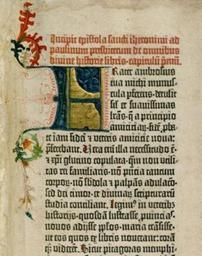 Incipit epistola sancti iheronimi ad
paulinum presbiterum de omnibus
divine historie libris · capitulū pmū.
Frater ambrosius
tua michi munus-
cula perferens · detulit
et suavissimas
lrās · q̄ a principio
amicicia℞ · fidē pba-
te iam fidei ⁊ veteris amicicie nova
pferebant. Vera eni illa necessitudo ē ·
⁊ xpi glutino copulata · qm nō utili-
tas rei familiaris · nō pncia tantum
corpo℞ · nō sbdola ⁊ palpās adulacō ·
sed dei timor · et divinarum scripturarum
studia conciliant. Legimꝰ in veteribꝫ
historijs · quosdā lustrasse puīcias ·
novos adijsse pplos · maria trāsisse ·
ut eos quos ex libris noverant : coram
qꝫ viderēt. Sicut pitagoras memphi-